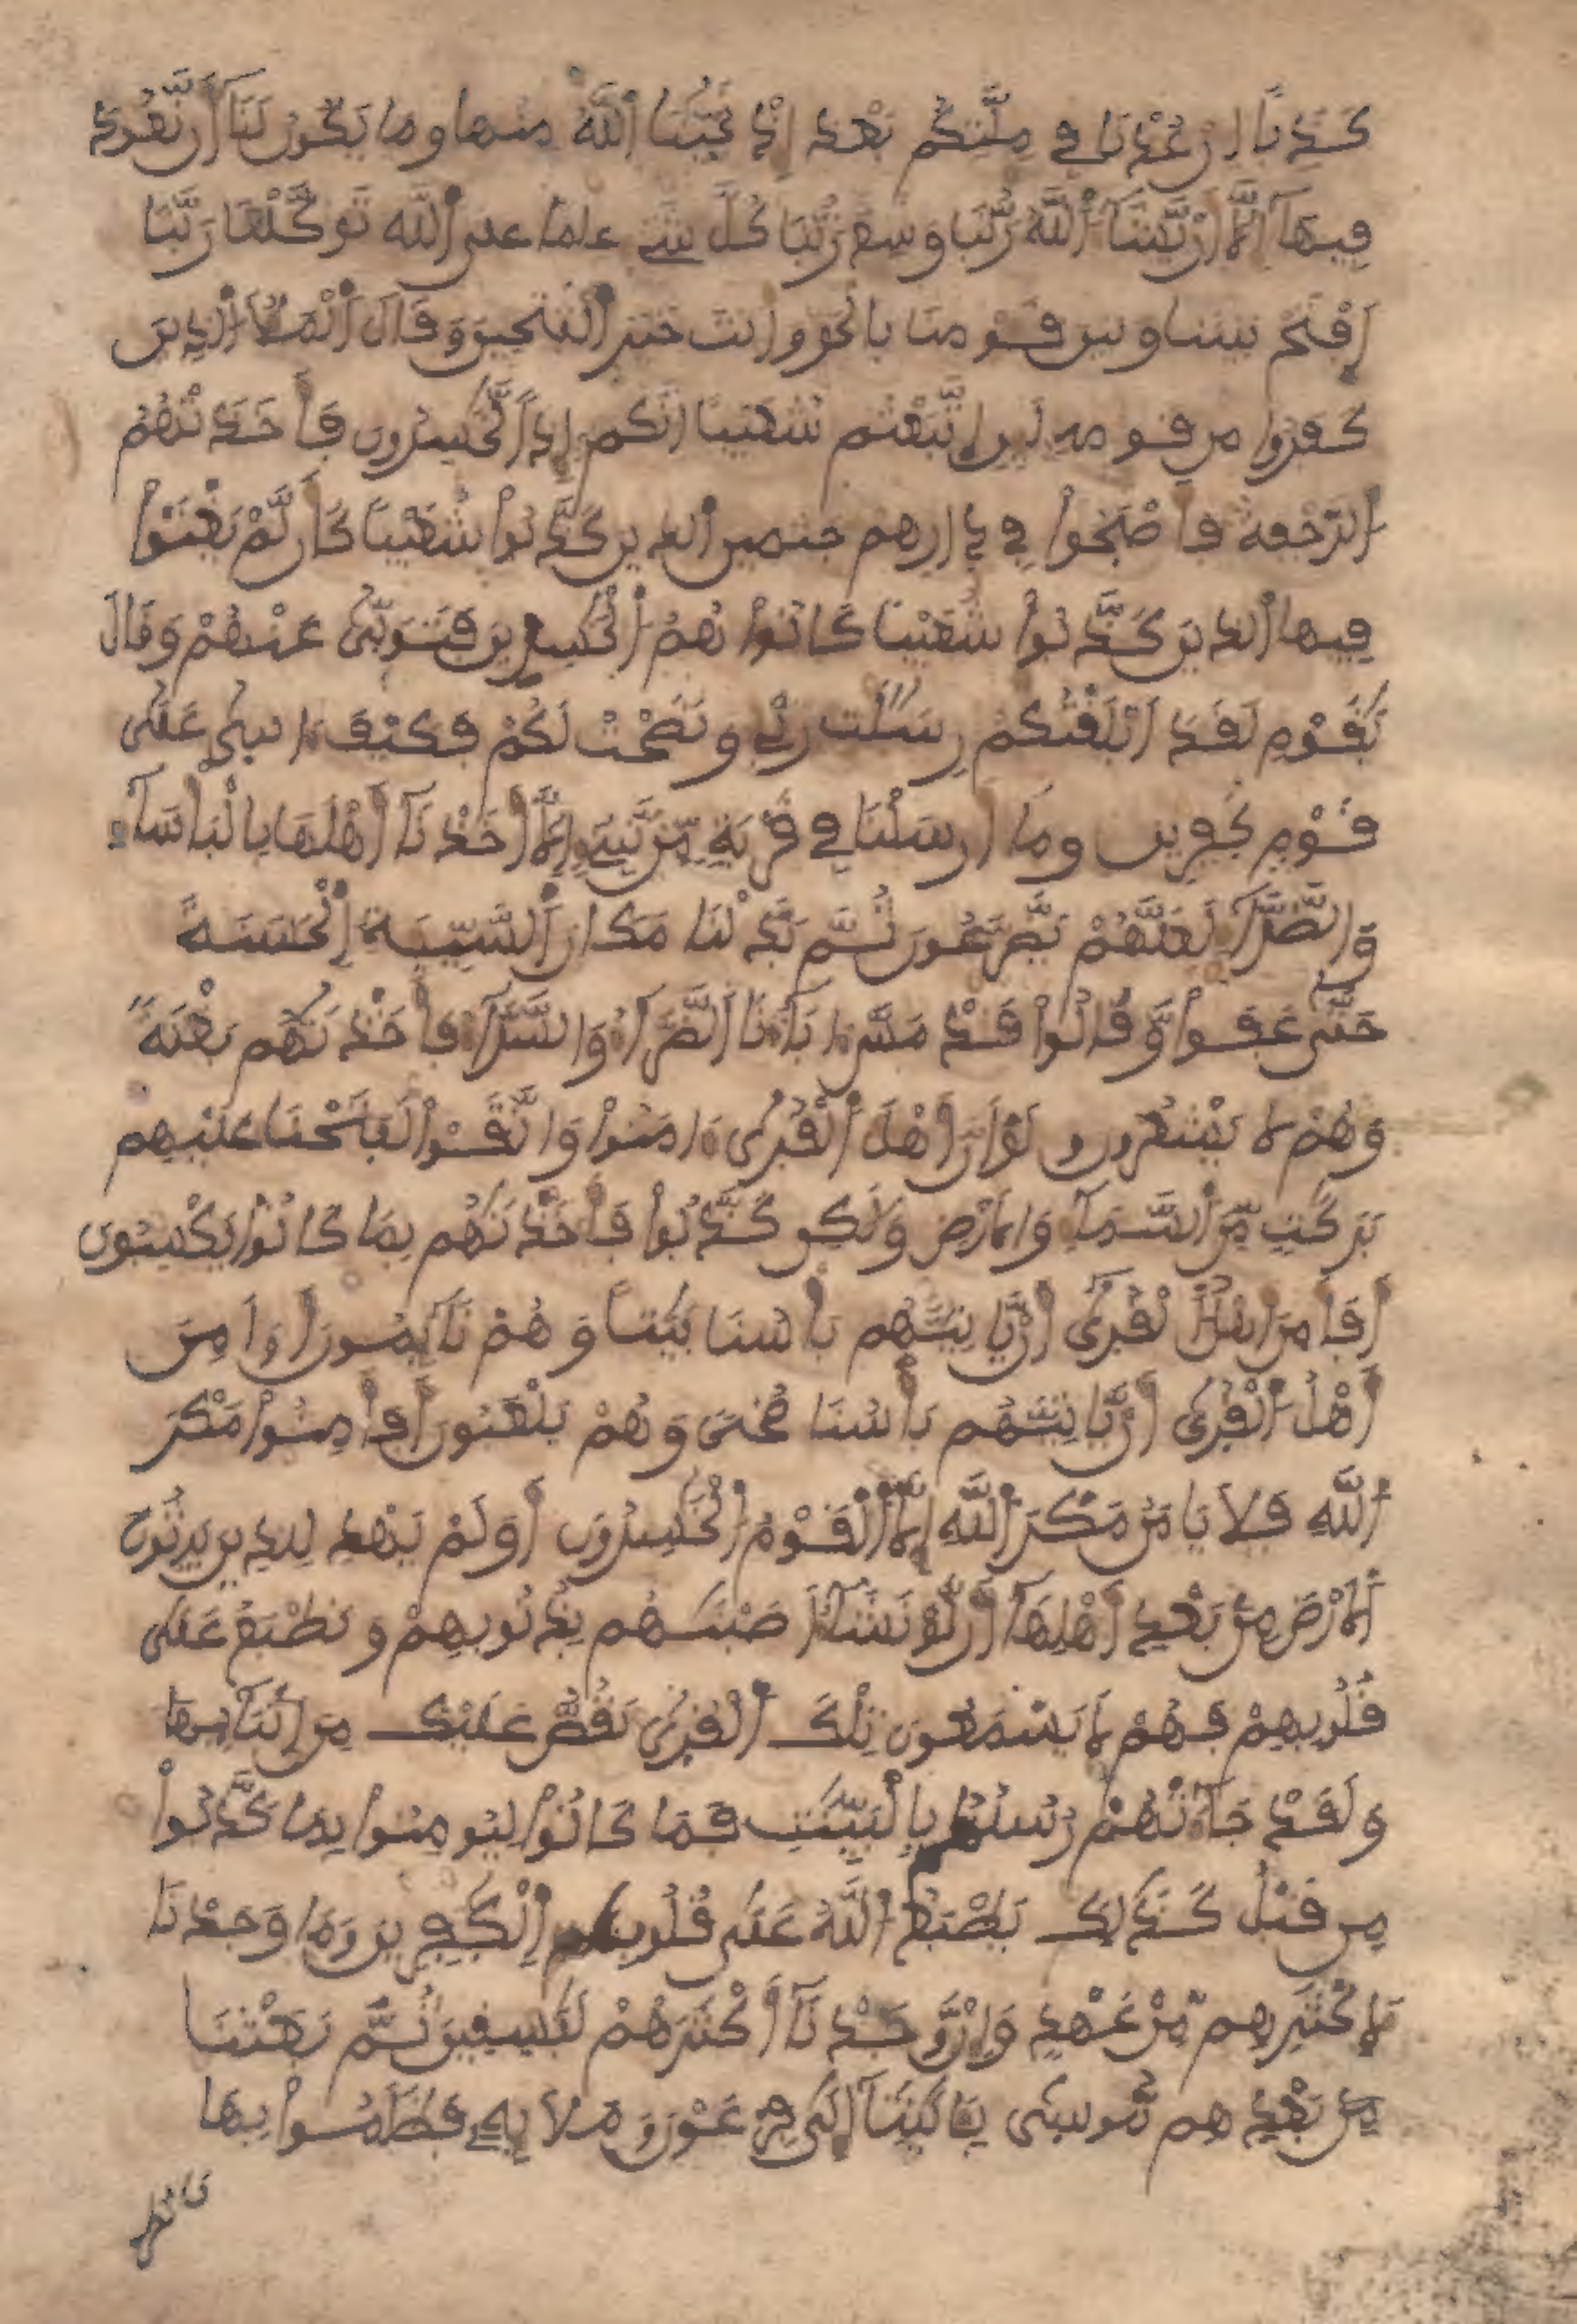 كَذِبًا اِنْ عُدْنَا فِے مِلَّتِكُم بَعْدَ إِذْ نَجَّيٰنَا اَللَّهُ مِنْهَا وَمَا يَكُونُ لَنَآ أَن نَّعُودَ
فِيهَآ إِلَّآ أَنْ يَّشَآءَ اَللَّهُ رَبُّنَا وَسِعَ رَبُّنَا كُلَّ شَےْءٍ عِلْمًا عَلَى اَللَّهِ تَوَكَّلْنَا رَبَّنَا
اَفْتَحْ بَيْنَنَا وَبَيْنَ قَوْمِنَا بِالْحَقِّ وَأَنتَ خَيْرُ اَلْفَٰتِحِينَ وَقَالَ اَلْمَلَأُ اُلذِينَ
كَفَرُوا مِن قَوْمِهِ لَئِنِ اِتَّبَعْتُمْ شُعَيْبًا اِنَّكُمْ إِذًا لَّخَٰسِرُونَ فَأَخَذَتْهُمُ
اُلرَّجْفَةُ فَأَصْبَحُوا فِے دِارِهِمْ جَٰثِمِينَ اَلذِينَ كَذَّبُوا شُعَيْبًا كَأَن لَّمْ يَغْنَوْا
فِيهَا اَلذِينَ كَذَّبُوا شُعَيْبًا كَانُوا هُمُ اُلْخَٰسِرِينَ فَتَوَلَّىٰ عَنْهُمْ وَقَالَ
يَٰقَوْمِ لَقَدَ اَبْلَغْتُكُمْ رِسَٰلَٰتِ رَبِّے وَنَصَحْتُ لَكُمْ فَكَيْفَ ءَاسِىٰ عَلَىٰ
قَوْمٍ كٰفِرِينَ وَمَا أَرْسَلْنَا فِے قَرْيَةٍ مِّن نَّبِےءٍ اِلَّآ أَخَذْنَآ أَهْلَهَا بِالْبَأْسَآءِ
وَالضَّرَّآءِ لَعَلَّهُمْ يَضَّرَّعُونَ ثُمَّ بَدَّلْنَا مَكَانَ اَلسَّيِّئَةِ اِلْحَسَنَةَ
حَتَّىٰ عَفَوا وَّقَالُوا قَدْ مَسَّ ءَابَآءَنَا اَلضَّرَّآءُ وَالسَّرَّآءُ فَأَخَذْنَٰهُم بَغْتَةً
وَهُمْ لَا يَشْعُرُونَ وَلَوَ اَنَّ أَهْلَ اَلْقُرَىٰ ءَامَنُوا وَاتَّقَوْا لَفَتَحْنَا عَلَيْهِم
بَرَكَٰتٍ مِّنَ اَلسَّمَآءِ وَالَارْضِ وَلَٰكِن كَذَّبُوا فَأَخَذْنَٰهُم بِمَا كَانُوا يَكْسِبُونَ
أَفَأَمِنَ أَهْلُ اُلْقُرَىٰ أَنْ يَّاتِيَهُم بَأْسُنَا بَيَٰتًا وَهُمْ نَآئِمُونَ أَوَ اَمِنَ
أَهْلُ اُلْقُرَىٰ أَنْ يَّاتِيَهُم بَأْسُنَا ضُحىً وَهُمْ يَلْعَبُونَ أَفَأَمِنُوا مَكْرَ
اَللَّهِ فَلَا يَامَنُ مَكْرَ اَللَّهِ إِلَّا اَلْقَوْمُ اُلْخَٰسِرُونَ أَوَلَمْ يَهْدِ لِلذِينَ يَرِثُونَ
اَلَارْضَ مِنۢ بَعْدِ أَهْلِهَآ أَن لَّوْ نَشَآءُ اَصَبْنَٰهُم بِذُنُوبِهِمْ وَنَطْبَعُ عَلَىٰ
قُلُوبِهِمْ فَهُمْ لَا يَسْمَعُونَ تِلْكَ اَلْقُرَىٰ نَقُصُّ عَلَيْكَ مِنَ اَنۢبَآئِهَا
وَلَقَدْ جَآءَتْهُمْ رُسُلُهُم بِالْبَيِّنَٰتِ فَمَا كَانُوا لِيُومِنُوا بِمَا كَذَّبُوا
مِن قَبْلُ كَذَٰلِكَ يَطْبَعُ اُللَّهُ عَلَىٰ قُلُوبِ اِلْكٰفِرِينَ وَمَا وَجَدْنَا
لِأَكْثَرِهِم مِّنْ عَهْدٍ وَإِنْ وَّجَدْنَآ أَكْثَرَهُمْ لَفَٰسِقِينَ ثُمَّ بَعَثْنَا
مِنۢ بَعْدِهِم مُّوسَىٰ بِـَٔايَٰتِنَآ إِلَىٰ فِرْعَوْنَ وَمَلَإِيْهِ فَظَلَمُوا بِهَا
فَانظُرْ